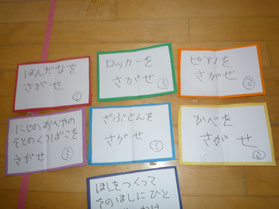 ほんだなを
さがせ
①
ロッカーを
さがせ
ピアノを
さがせ
②
にじのおへやの
そとのくつばこを
さがせ
③
ざぶとんを
さがせ
かべを
さがせ
②
ほしをつくって
そのほしにひと